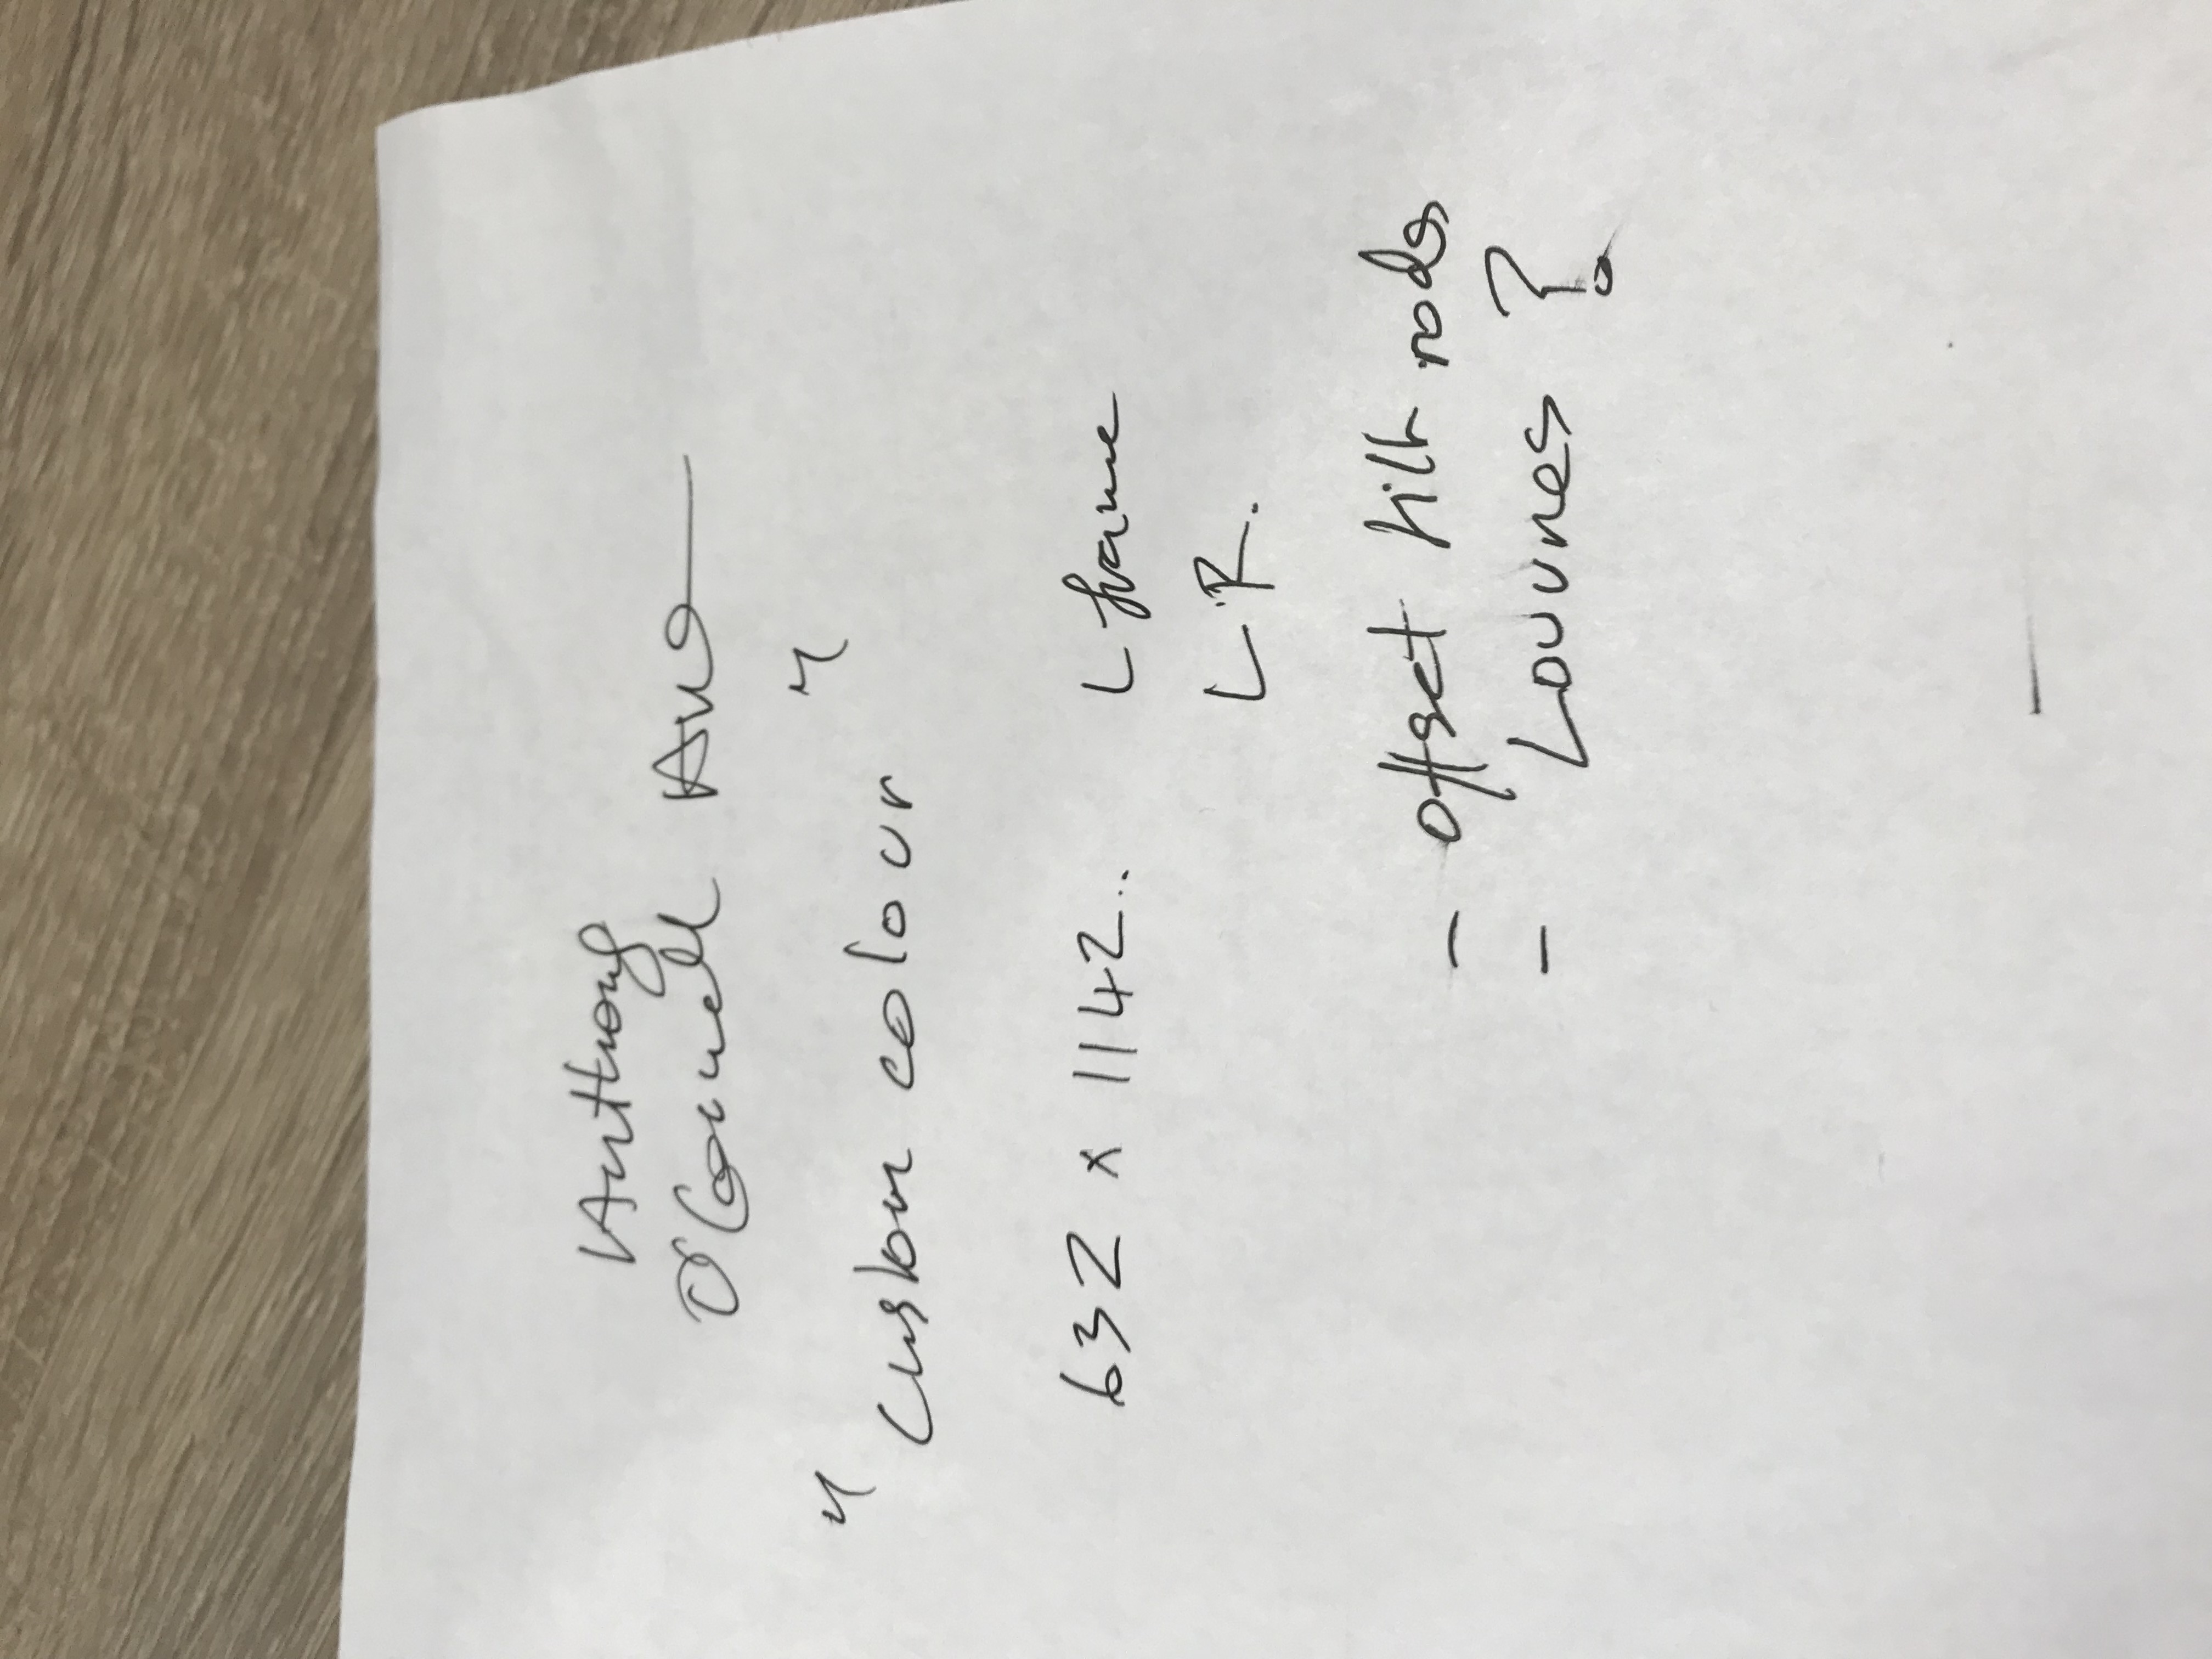 Anthony
O'Connell Ave
" Custom colour "
632 x 1142.. L frame
L.R.
- offset tilt rods
- Louvres ?